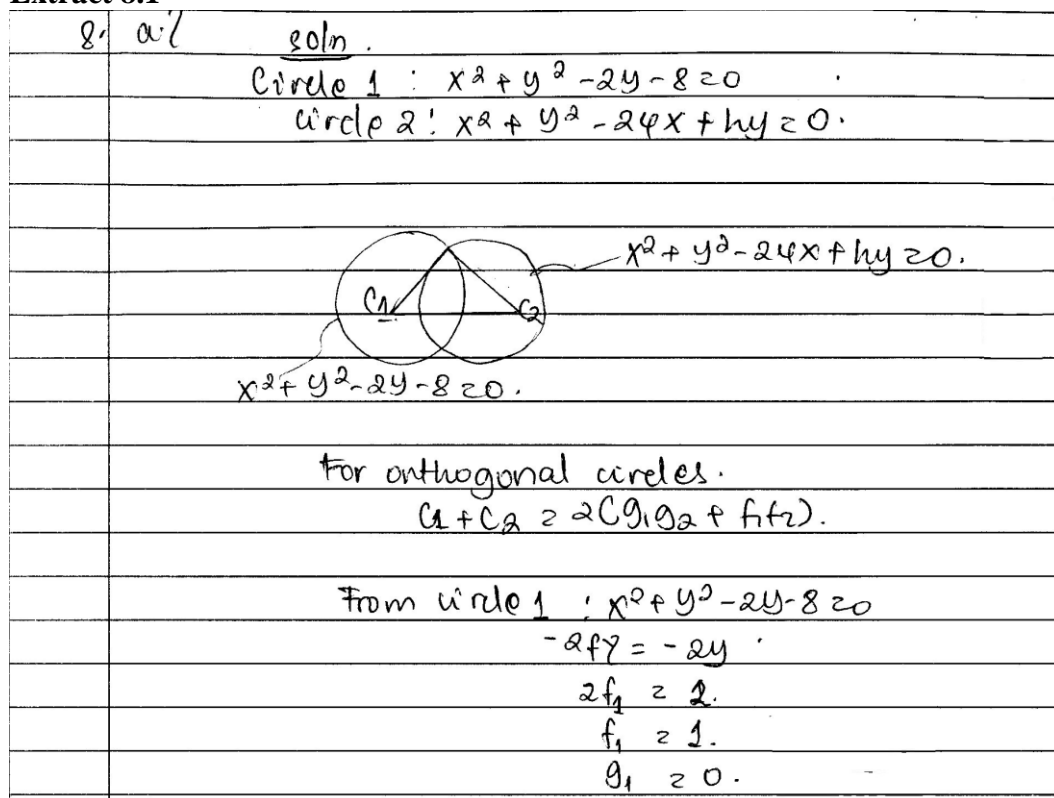 8. a.)
soln.
Circle 1 : x² + y² - 2y - 8 = 0
circle 2 : x² + y² - 24x + hy = 0.
x² + y² - 24x + hy = 0.
C1
C2
x² + y² - 2y - 8 = 0.
For onthogonal circles.
C1 + C2 = 2(g1g2 + f1f2).
From circle 1 : x² + y² - 2y - 8 = 0
-2fy = -2y
2f1 = 2.
f1 = 1.
g1 = 0.